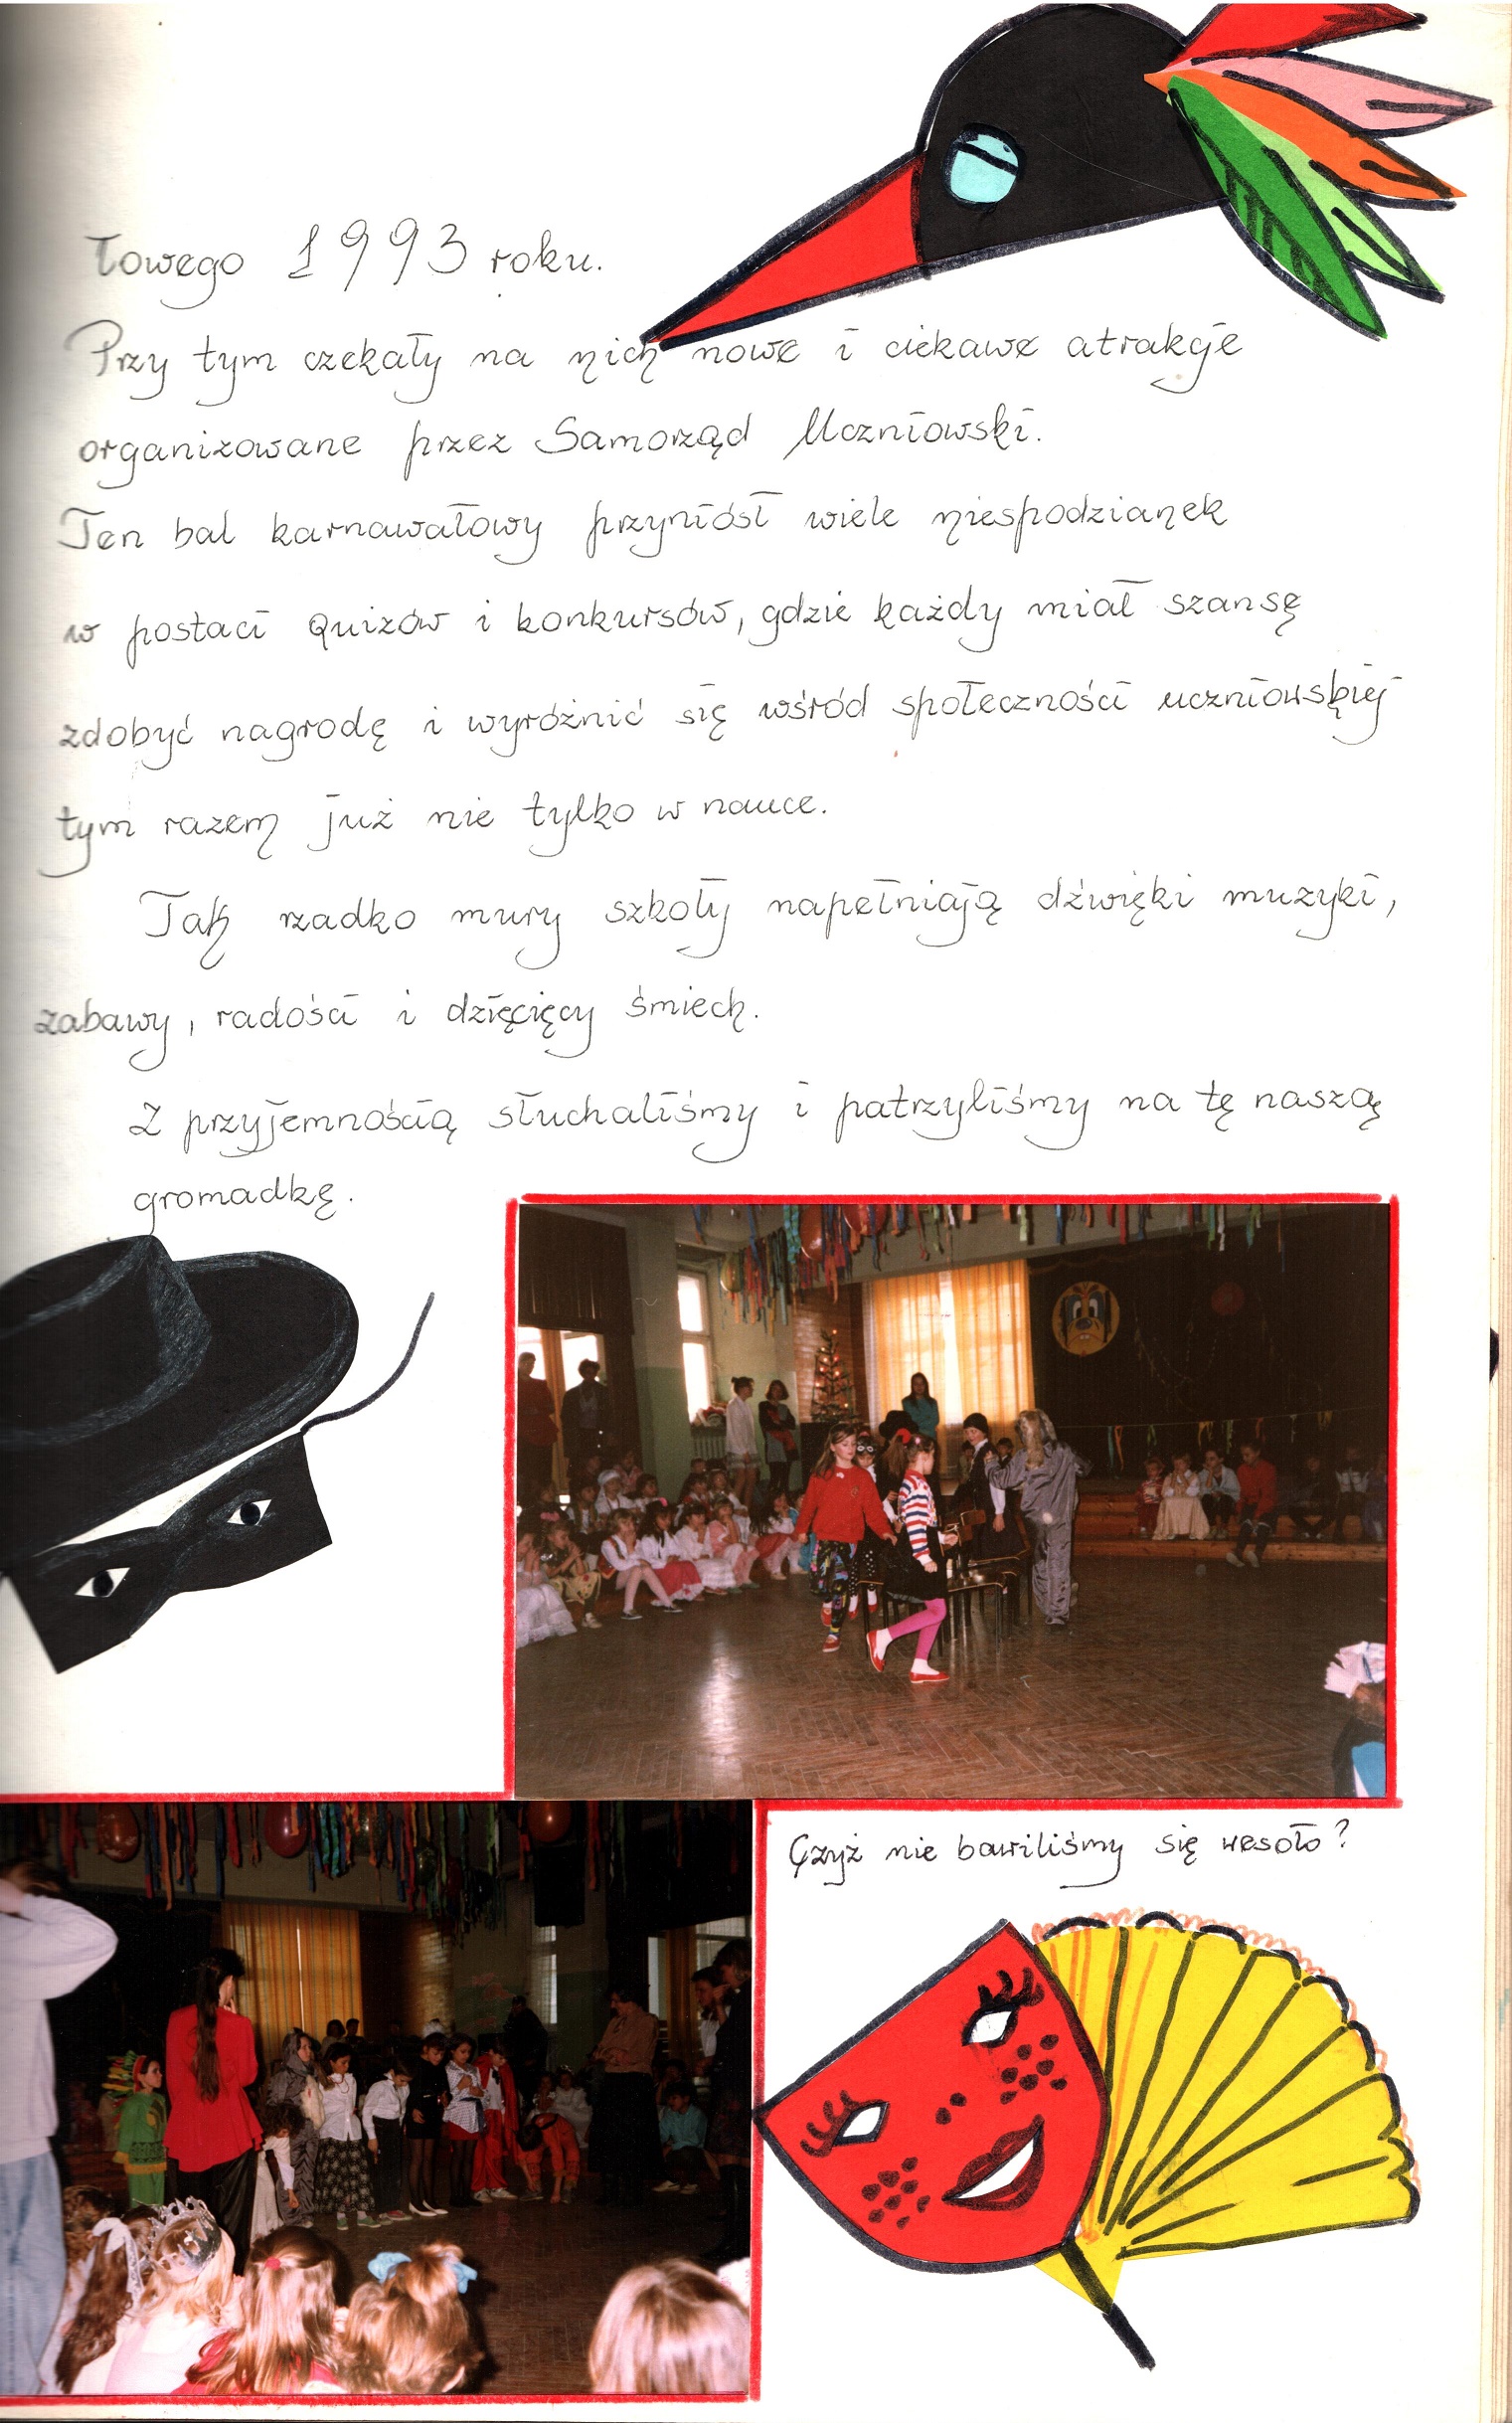 towego 1993 roku.
Przy tym czekały na nich nowe i ciekawe atrakcje
organizowane przez Samorząd Uczniowski.
Ten bal karnawałowy przyniósł wiele niespodzianek
w postaci quizów i konkursów, gdzie każdy miał szansę
zdobyć nagrodę i wyróżnić się wśród społeczności uczniowskiej
tym razem już nie tylko w nauce.
Tak rzadko mury szkoły napełniają dźwięki muzyki,
zabawy, radości i dziecięcy śmiech.
Z przyjemnością słuchaliśmy i patrzyliśmy na tę naszą
gromadkę.
Czyż nie bawiliśmy się wesoło?